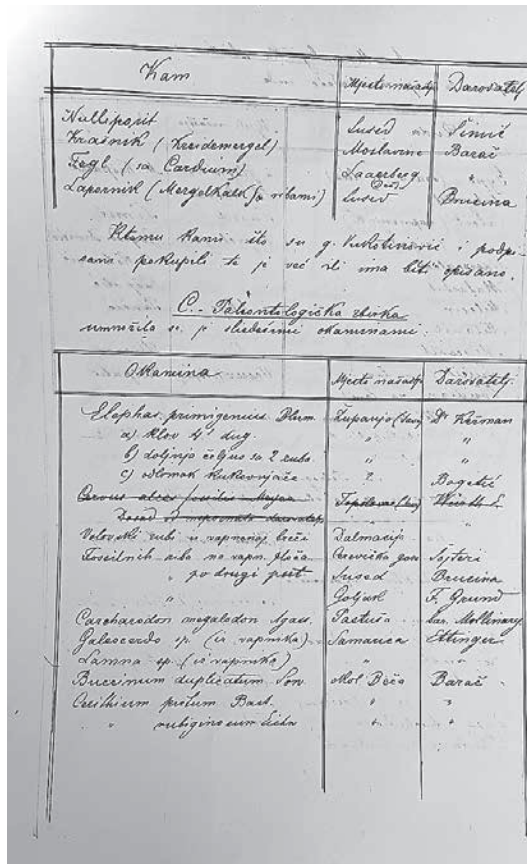 Kam Mjesto našašća Darovatelj
Nulliporit Sused Šimić
Krašnik (Kreidemergel) Moslavine Barač
Tegl (sa Cardium) Laaerberg
(Beč)
Lapornik (Mergelkalk sa ribami) Sused Brusina
K tomu kami što su g. Vukotinović i podpi-
sani pokupili te je već ili ima biti opisano.
C. Paleontologička zbirka
umnožila se je sliedećimi okaminami:
Okamina Mjesto našašća Darovatelj.
Elephas primigenius Blum Županja (Sava) Dr Kerman
a) klov 4' dug. " "
b) doljnja čeljust sa 2 zuba " "
c) odlomak kukovnjače ? Bogetić
Cervus alces fossilis Meyer
Dosad od nepoznata darovatelja
Volovski zubi u vapnenoj breči Dalmacija
Fossilnih riba na vapn. ploča Sojteri
" po drugi put Sused Brusina
" F. Grund
Carcharodon megalodon Agass. bar. Mollinary
Galeocerdo sp. (iz vapnika) Samarica Ettinger
Lamna sp. (iz vapnika) " "
Buccinum duplicatum Sow. Barač
Cerithium pictum Bast. " "
" rubiginosum Eichw " "